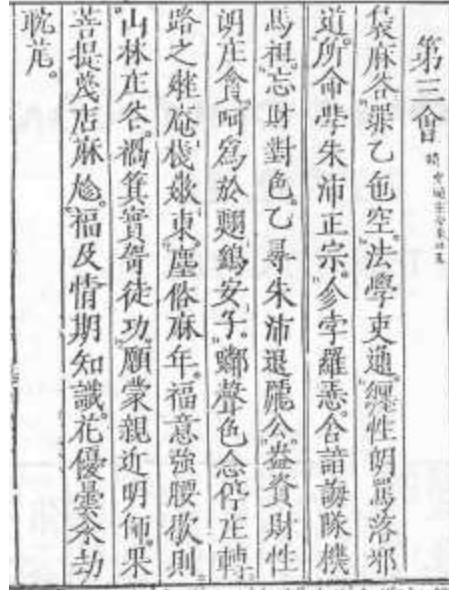 第三會
麻各。罪乙㐌空。法學吏通。性朗罵落邪
道。所命學朱沛正宗。孛羅𢚸。舍諳誨隊機
馬祖。忘財對色。乙尋朱沛退龐公。盎資財性
朗庄貪。呵為於安子。聲色念停庄轉
路之庵東。塵俗麻年。福意強腰歇則
山林庄谷。禍箕實哿徒功。願蒙親近明師。果
菩提蔑店麻。福及情期知識。花優曇余劫
耽芃。